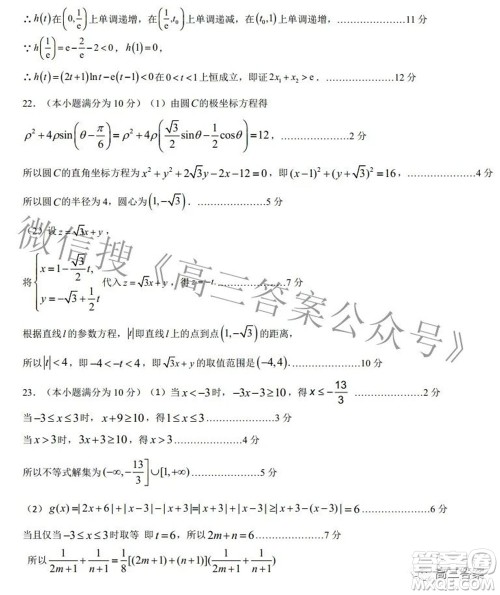 ∴ h(t) 在 (0, 1/e) 上单调递增，在 (1/e, t₀) 上单调递减，在 (t₀,1) 上单调递增，……………11 分
∵ h(1/e) = e − 2/e − 2 < 0， h(1) = 0，
∴ h(t) = (2t+1)ln t − e(t−1) < 0 在 0 < t < 1 上恒成立，即证 2x₁ + x₂ > e．……………12 分
22．（本小题满分为 10 分）（1）由圆C的极坐标方程得
ρ² + 4ρsin(θ − π/6) = ρ² + 4ρ(√3/2 sinθ − 1/2 cosθ) = 12，……………2 分
所以圆C的直角坐标方程为 x² + y² + 2√3y − 2x − 12 = 0，即 (x−1)² + (y+√3)² = 16，……………4 分
所以圆C的半径为 4，圆心为 (1, −√3)．……………5 分
设 z = √3x + y，
将 { x = 1 − √3/2 t, y = −√3 + 1/2 t 代入 z = √3x + y，得 z = −t ……………7 分
根据直线 l 的参数方程，|t| 即直线 l 上的点到点 (1, −√3) 的距离，
所以 |t| < 4，即 −4 < −t < 4，即 √3x + y 的取值范围是 (−4, 4)．……………10 分
23．（本小题满分为 10 分）（1）当 x < −3 时，−3x − 3 ≥ 10，得 x ≤ −13/3 ……………2 分
当 −3 ≤ x ≤ 3 时，x + 9 ≥ 10，得 1 ≤ x ≤ 3……………3 分
当 x > 3 时，3x + 3 ≥ 10，得 x > 3……………4 分
所以不等式解集为 (−∞, −13/3] ∪ [1, +∞)……………5 分
（2）g(x) = |2x+6| + |x−3| − |x+3| = |x+3| + |x−3| ≥ |(x+3) − (x−3)| = 6……………6 分
当且仅当 −3 ≤ x ≤ 3 时取等 即 t = 6，所以 2m + n = 6……………7 分
所以 1/(2m+1) + 1/(n+1) = 1/8 [(2m+1) + (n+1)](1/(2m+1) + 1/(n+1))
微信搜《高三答案公众号》
高三答案